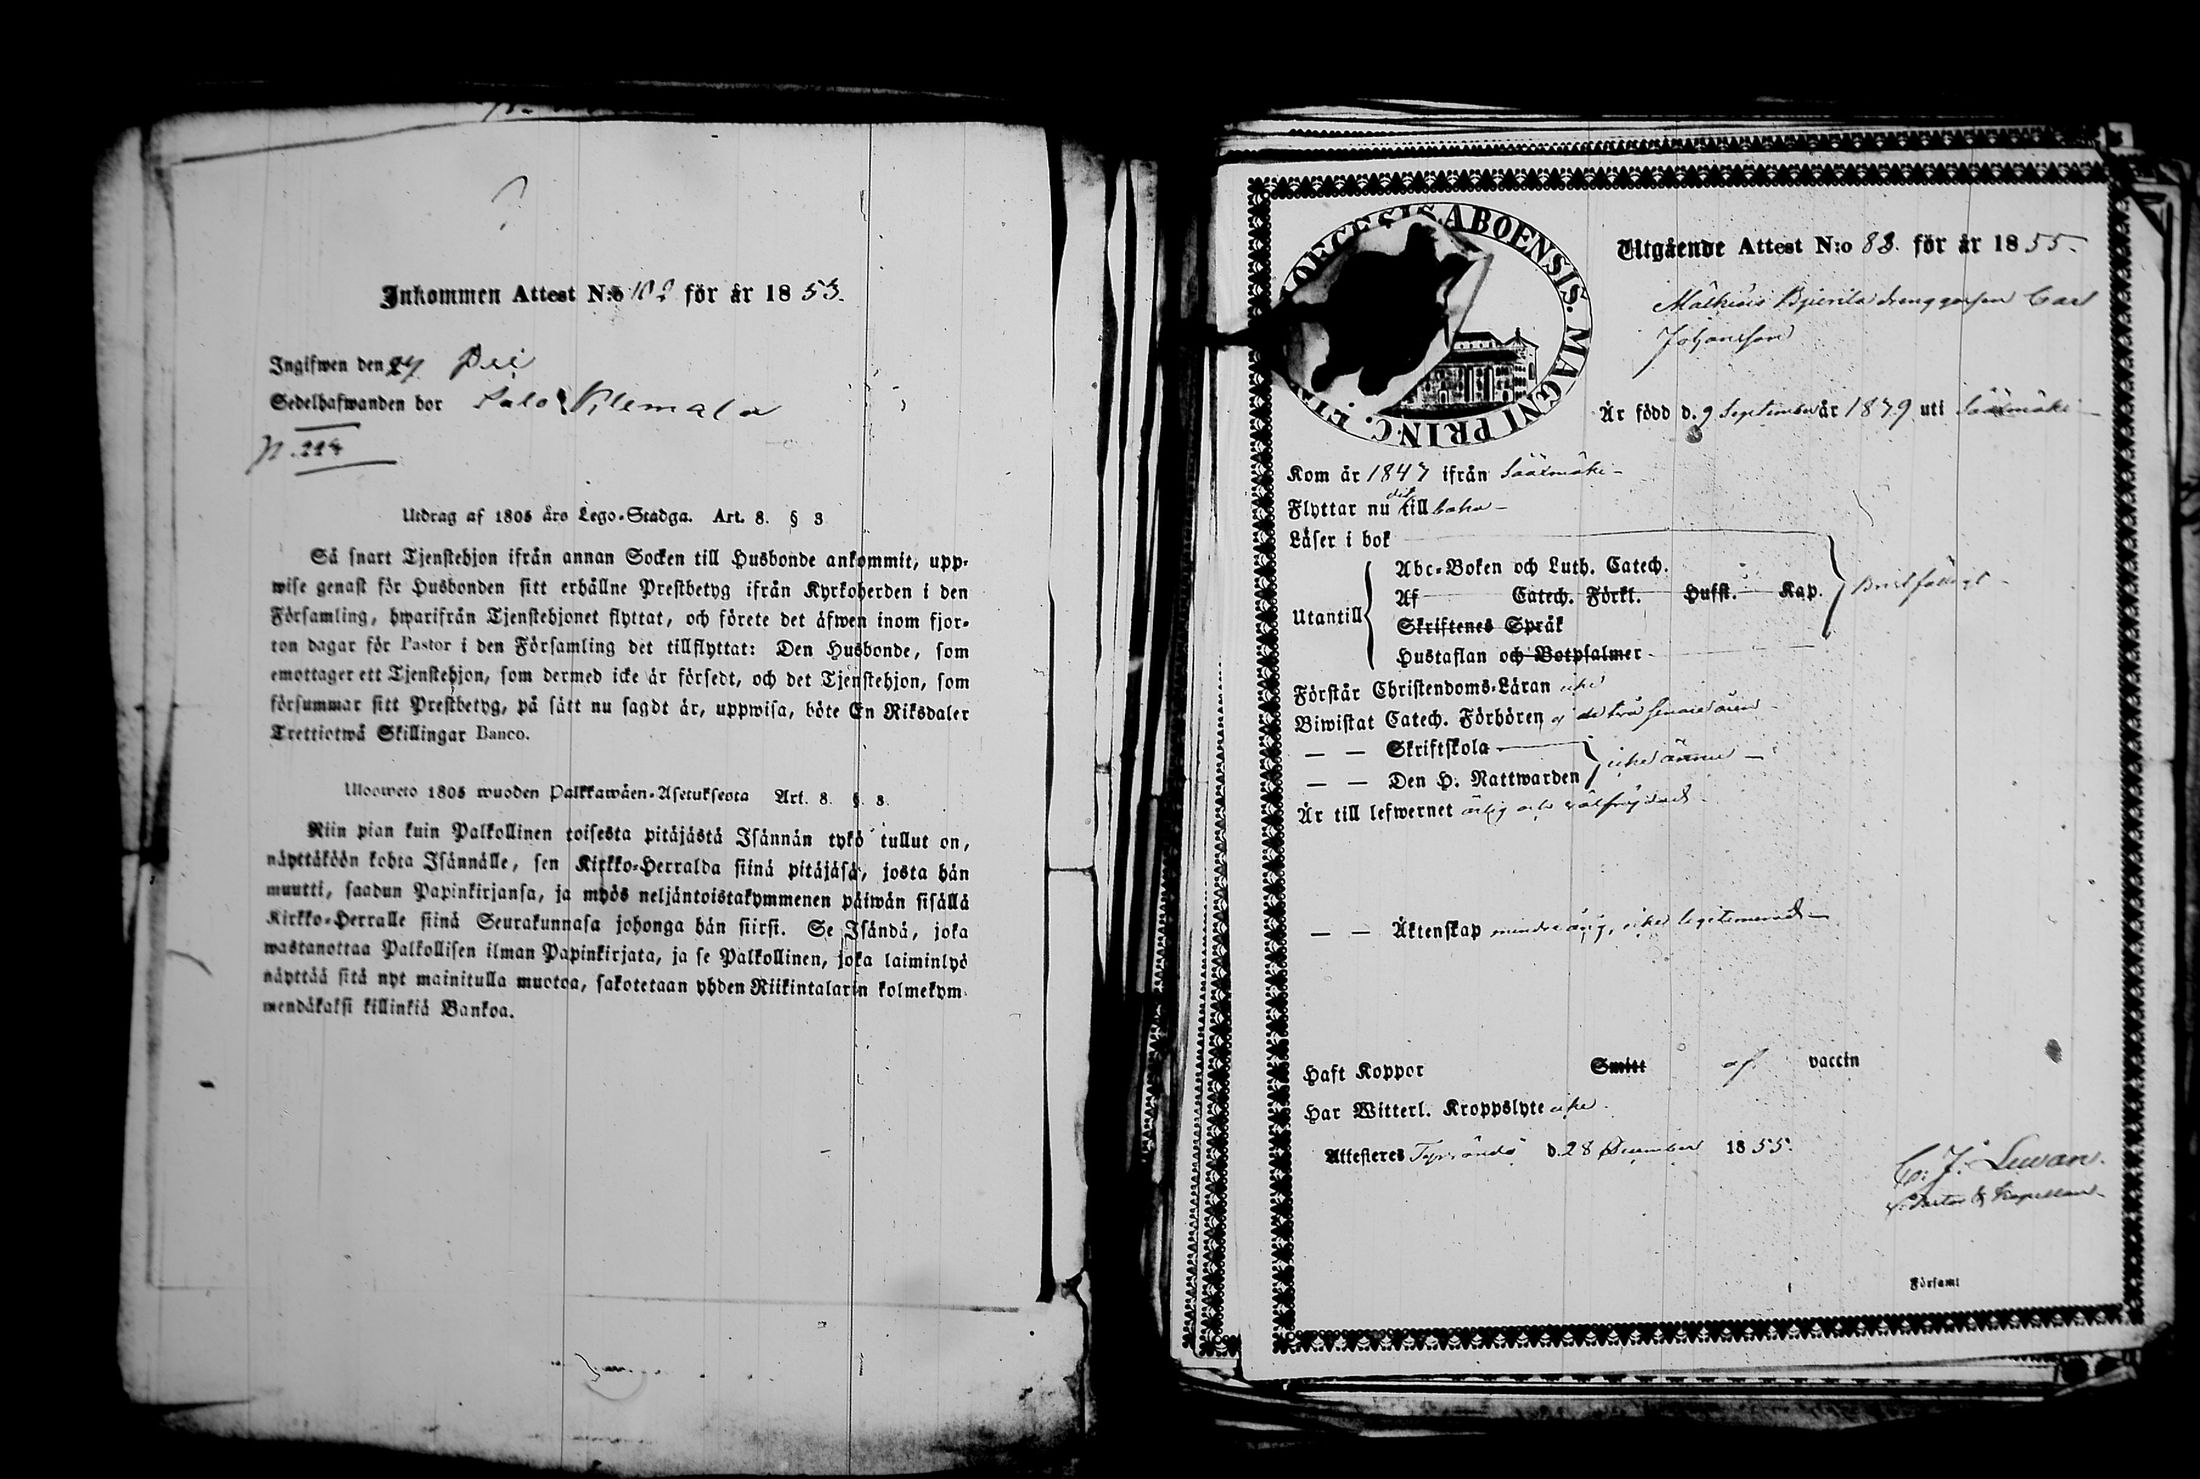 Inkommen Attest N:o 102 för år 1853.
Ingifwen den 27 Dec
Sedelhafwanden bor Salo Klemala
N. 228
Utdrag af 1805 års Lego-Stadga. Art. 8. § 3
Så snart Tjenstehjon ifrån annan Socken till Husbonde ankommit, upp-
wise genast för Husbonden sitt erhållne Prestbetyg ifrån Kyrkoherden i den
Församling, hwarifrån Tjenstehjonet flyttat, och förete det äfwen inom fjor-
ton dagar för Pastor i den Församling det tillflyttat: Den Husbonde, som
emottager ett Tjenstehjon, som dermed icke är försedt, och det Tjenstehjon, som
försummar sitt Prestbetyg, på sätt nu sagdt är, uppwisa, böte En Riksdaler
Trettiotwå Skillingar Banco.
Ulosweto 1805 wuoden Palkkawäen-Asetuksesta Art. 8. § 3.
Niin pian kuin Palkollinen toisesta pitäjästä Isännän tykö tullut on,
näyttäköön kohta Isännälle, sen Kirkko-Herralda siinä pitäjäsä, josta hän
muutti, saadun Papinkirjansa, ja myös neljäntoistakymmenen päiwän sisällä
Kirkko-Herralle siinä Seurakunnasa johonga hän siirsi. Se Isändä, joka
wastanottaa Palkollisen ilman Papinkirjata, ja se Palkollinen, joka laiminlyö
näyttää sitä nyt mainitulla muotoa, sakotetaan yhden Riikintalarin kolmekym
mendäkaksi killinkiä Bankoa.
OECESIS ABOENSIS. MAGNI PRINC. ET
Utgående Attest N:o 83. för år 1855
drenggossen Carl
Johansson
Är född d. 9 September år 1839 uti Sääxmäki
Kom år 1847 ifrån Sääxmäki
Flyttar nu dit tillbaka
Läser i bok
Abc-Boken och Luth. Catech.
Utantill Af Catech. Förkl. Husst. Kap. Bristfälligt
Skriftenes Språk
Hustaflan och Botpsalmer
Förstår Christendoms-Läran icke
Biwistat Catech. Förhören ej de två senare åren
— — Skriftskola
— — Den H. Nattwarden icke ännu
Är till lefwernet ärlig och välfrejdad
— — Äktenskap minderårig, icke legitimerad
Haft Koppor Smitt af vaccin
Har Witterl. Kroppslyte icke
Attesteres Tyrwändö d. 28 December 1855.
C. J. Lewan.
Pastor & Kapellan
Församl